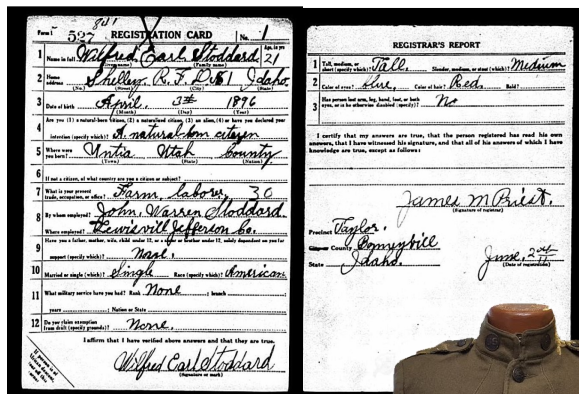 Form 1 527 REGISTRATION CARD No. 1
1 Name in full Wilfred Earl Stoddard Age, in yrs 21
(Given name) (Family name)
2 Home address Shelley R. F. D. #1 Idaho.
(No.) (Street) (City) (State)
3 Date of birth April 3rd 1896
(Month) (Day) (Year)
4 Are you (1) a natural-born citizen, (2) a naturalized citizen, (3) an alien, (4) or have you declared your
intention (specify which)? A natural born citizen
5 Where were you born? Untia Utah County
(Town) (State) (Nation)
6 If not a citizen, of what country are you a citizen or subject?
7 What is your present trade, occupation, or office? Farm laborer, 30
8 By whom employed? John Warren Stoddard.
Where employed? Lewisvill Jefferson Co.
9 Have you a father, mother, wife, child under 12, or a sister or brother under 12, solely dependent on you for
support (specify which)? None.
10 Married or single (which)? Single Race (specify which)? American
11 What military service have you had? Rank None ; branch
years ; Nation or State
12 Do you claim exemption from draft (specify grounds)? None.
I affirm that I have verified above answers and that they are true.
Wilfred Earl Stoddard
(Signature or mark)
REGISTRAR'S REPORT
1 Tall, medium, or short (specify which)? Tall. Slender, medium, or stout (which)? Medium
2 Color of eyes? blue. Color of hair? Red. Bald?
3 Has person lost arm, leg, hand, foot, or both eyes, or is he otherwise disabled (specify)? No
I certify that my answers are true, that the person registered has read his own
answers, that I have witnessed his signature, and that all of his answers of which I have
knowledge are true, except as follows:
James M Priest.
(Signature of registrar)
Precinct Taylor.
County Bonnyvill
State Idaho. June,
(Date of registration)